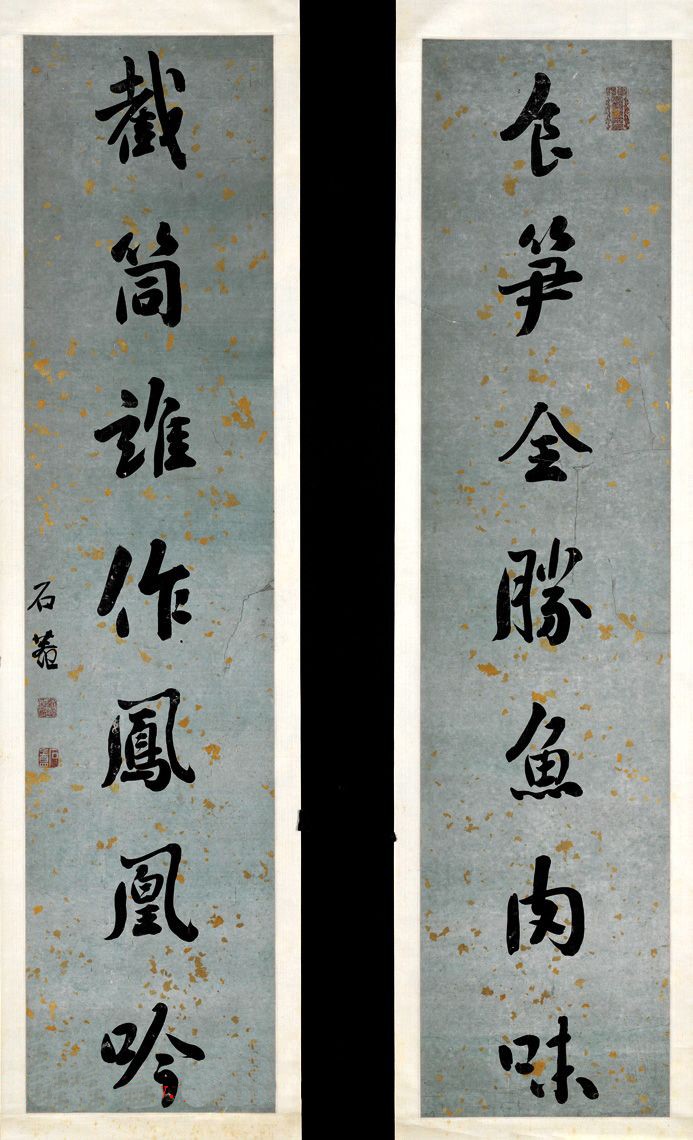 食笋全勝魚肉味
截筒誰作鳳凰吟
石菴